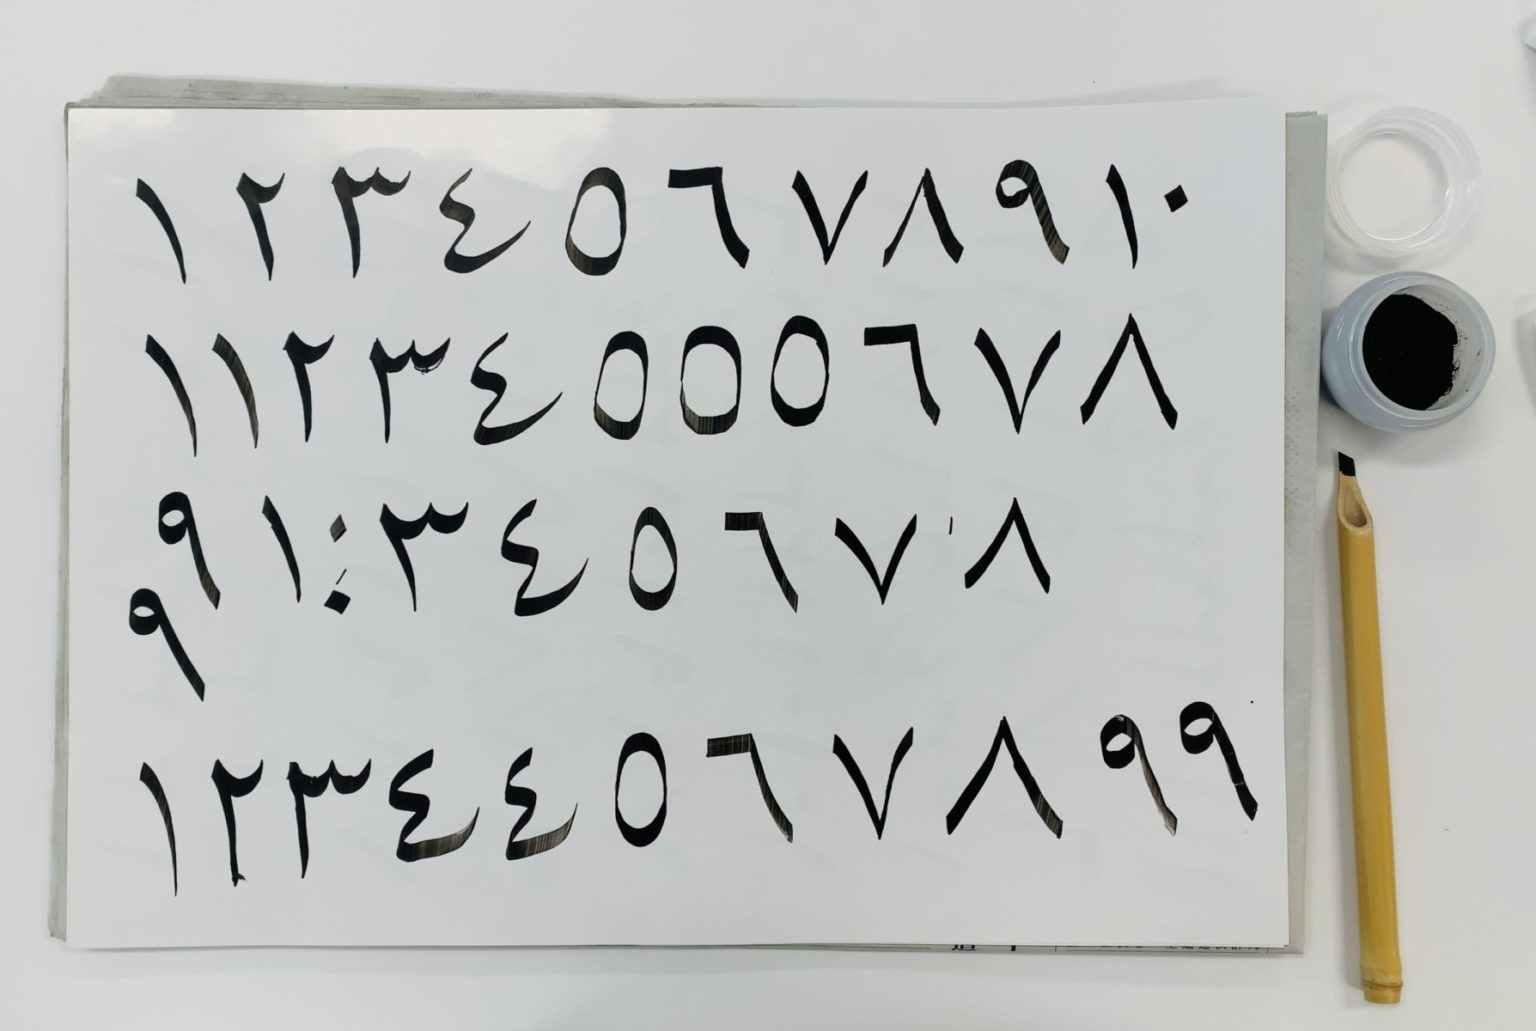 ١ ٢ ٣ ٤ ٥ ٦ ٧ ٨ ٩ ١٠
١ ١ ٢ ٣ ٤ ٥ ٥ ٥ ٦ ٧ ٨
٩ ١ : ٣ ٤ ٥ ٦ ٧ ٨
٩
١ ٢ ٣ ٤ ٤ ٥ ٦ ٧ ٨ ٩ ٩